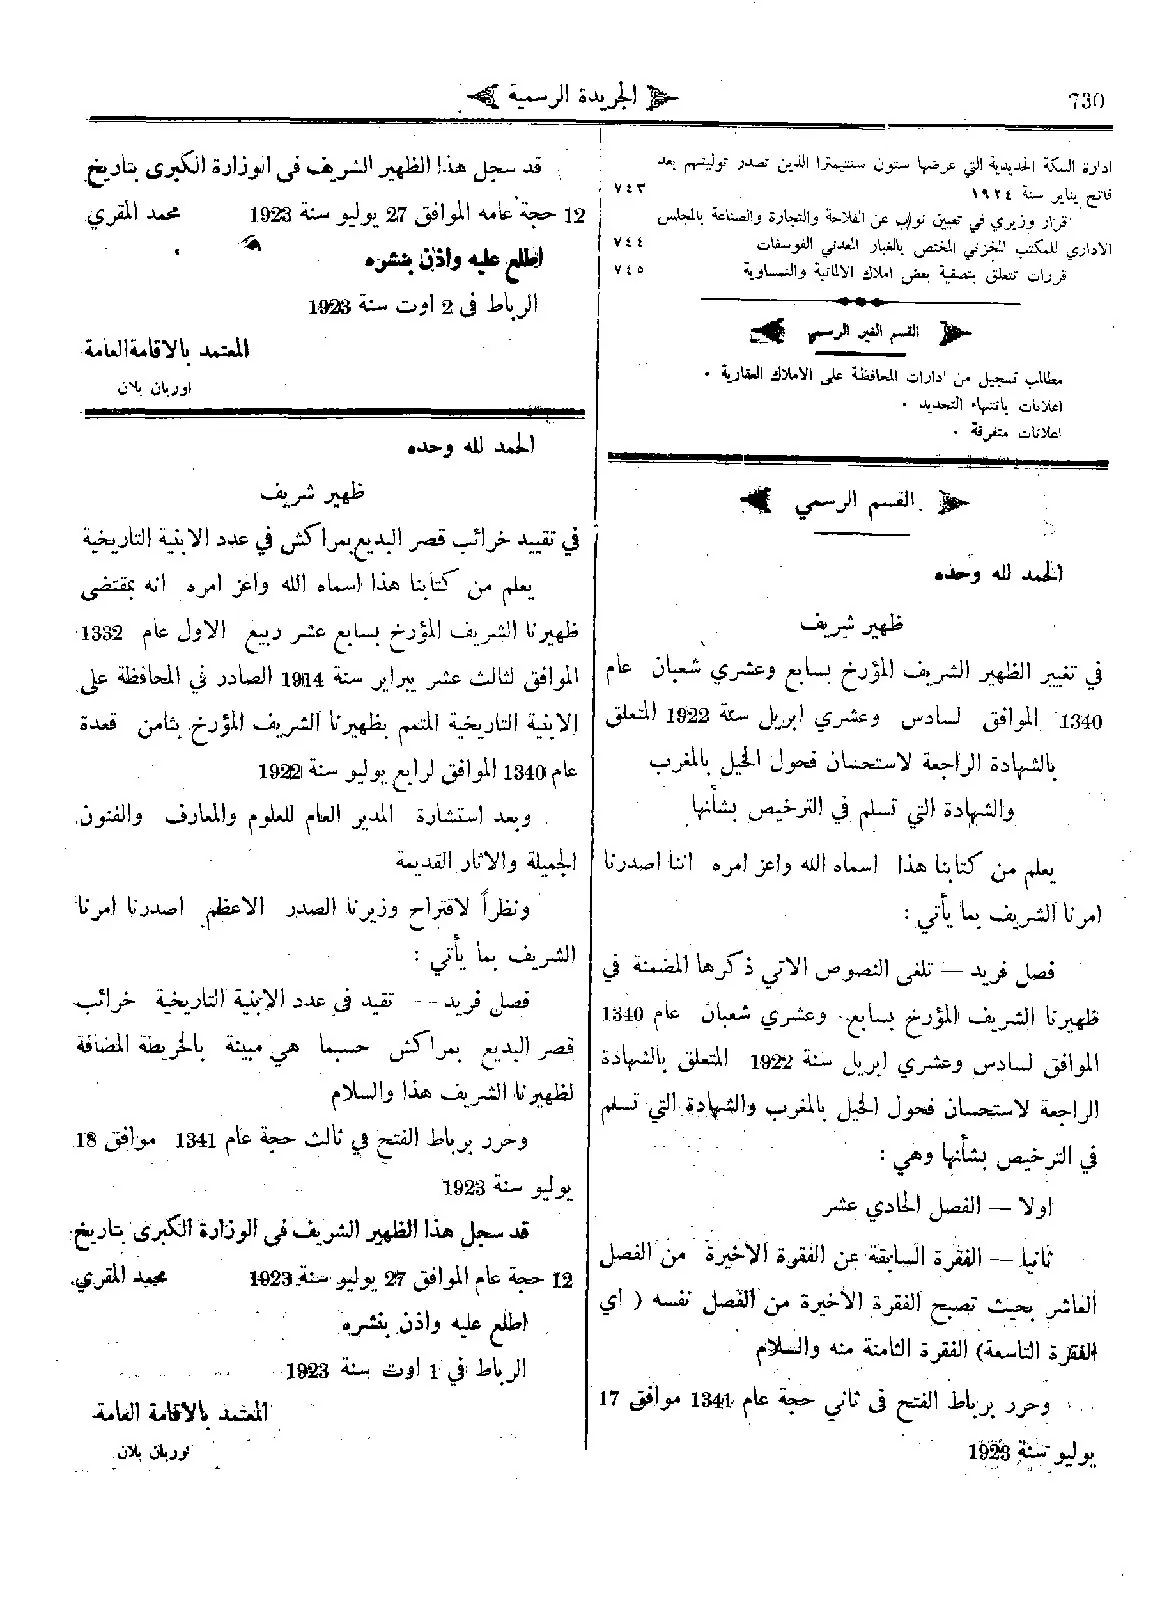 730
الجريدة الرسمية
ادارة السكة الحديدية التي عرضها ستون سنتيمترا الذين تصدر توليتهم بعد
فاتح يناير سنة ١٩٢٤ ٧٤٣
قرار وزيري في تعيين نواب عن الفلاحة والتجارة والصناعة بالمجلس
الاداري للمكتب المخزني المختص بالغبار المعدني الفوسفات ٧٤٤
قررات تتعلق بتصفية بعض املاك الالمانية والنمساوية ٧٤٥
القسم الغير الرسمي
مطالب تسجيل من ادارات المحافظة على الاملاك العقارية .
اعلانات بانتهاء التحديد .
اعلانات متفرقة .
القسم الرسمي
الحمد لله وحده
ظهير شريف
في تغيير الظهير الشريف المؤرخ بسابع وعشري شعبان عام
1340 الموافق لسادس وعشري ابريل سنة 1922 المتعلق
بالشهادة الراجعة لاستحسان فحول الخيل بالمغرب
والشهادة التي تسلم في الترخيص بشأنها
يعلم من كتابنا هذا اسماه الله واعز امره اننا اصدرنا
امرنا الشريف بما يأتي :
فصل فريد — تلغى النصوص الاتي ذكرها المضمنة في
ظهيرنا الشريف المؤرخ بسابع وعشري شعبان عام 1340
الموافق لسادس وعشري ابريل سنة 1922 المتعلق بالشهادة
الراجعة لاستحسان فحول الخيل بالمغرب والشهادة التي تسلم
في الترخيص بشأنها وهي :
اولا — الفصل الحادي عشر
ثانيا — الفقرة السابقة عن الفقرة الاخيرة من الفصل
العاشر بحيث تصبح الفقرة الاخيرة من الفصل نفسه ( اي
الفقرة التاسعة) الفقرة الثامنة منه والسلام
وحرر برباط الفتح في ثاني حجة عام 1341 موافق 17
يوليو سنة 1923
قد سجل هذا الظهير الشريف في الوزارة الكبرى بتاريخ
12 حجة عامه الموافق 27 يوليو سنة 1923 محمد المقري
اطلع عليه واذن بنشره
الرباط في 2 اوت سنة 1923
المعتمد بالاقامة العامة
اوربان بلان
الحمد لله وحده
ظهير شريف
في تقييد خرائب قصر البديع بمراكش في عدد الابنية التاريخية
يعلم من كتابنا هذا اسماه الله واعز امره انه بمقتضى
ظهيرنا الشريف المؤرخ بسابع عشر ربيع الاول عام 1332
الموافق لثالث عشر يبراير سنة 1914 الصادر في المحافظة على
الابنية التاريخية المتمم بظهيرنا الشريف المؤرخ بثامن قعدة
عام 1340 الموافق لرابع يوليو سنة 1922
وبعد استشارة المدير العام للعلوم والمعارف والفنون
الجميلة والاثار القديمة
ونظراً لاقتراح وزيرنا الصدر الاعظم اصدرنا امرنا
الشريف بما يأتي :
فصل فريد -- تقيد في عدد الابنية التاريخية خرائب
قصر البديع بمراكش حسبما هي مبينة بالخريطة المضافة
لظهيرنا الشريف هذا والسلام
وحرر برباط الفتح في ثالث حجة عام 1341 موافق 18
يوليو سنة 1923
قد سجل هذا الظهير الشريف في الوزارة الكبرى بتاريخ
12 حجة عام الموافق 27 يوليو سنة 1923 محمد المقري
اطلع عليه واذن بنشره
الرباط في 1 اوت سنة 1923
المعتمد بالاقامة العامة
اوربان بلان